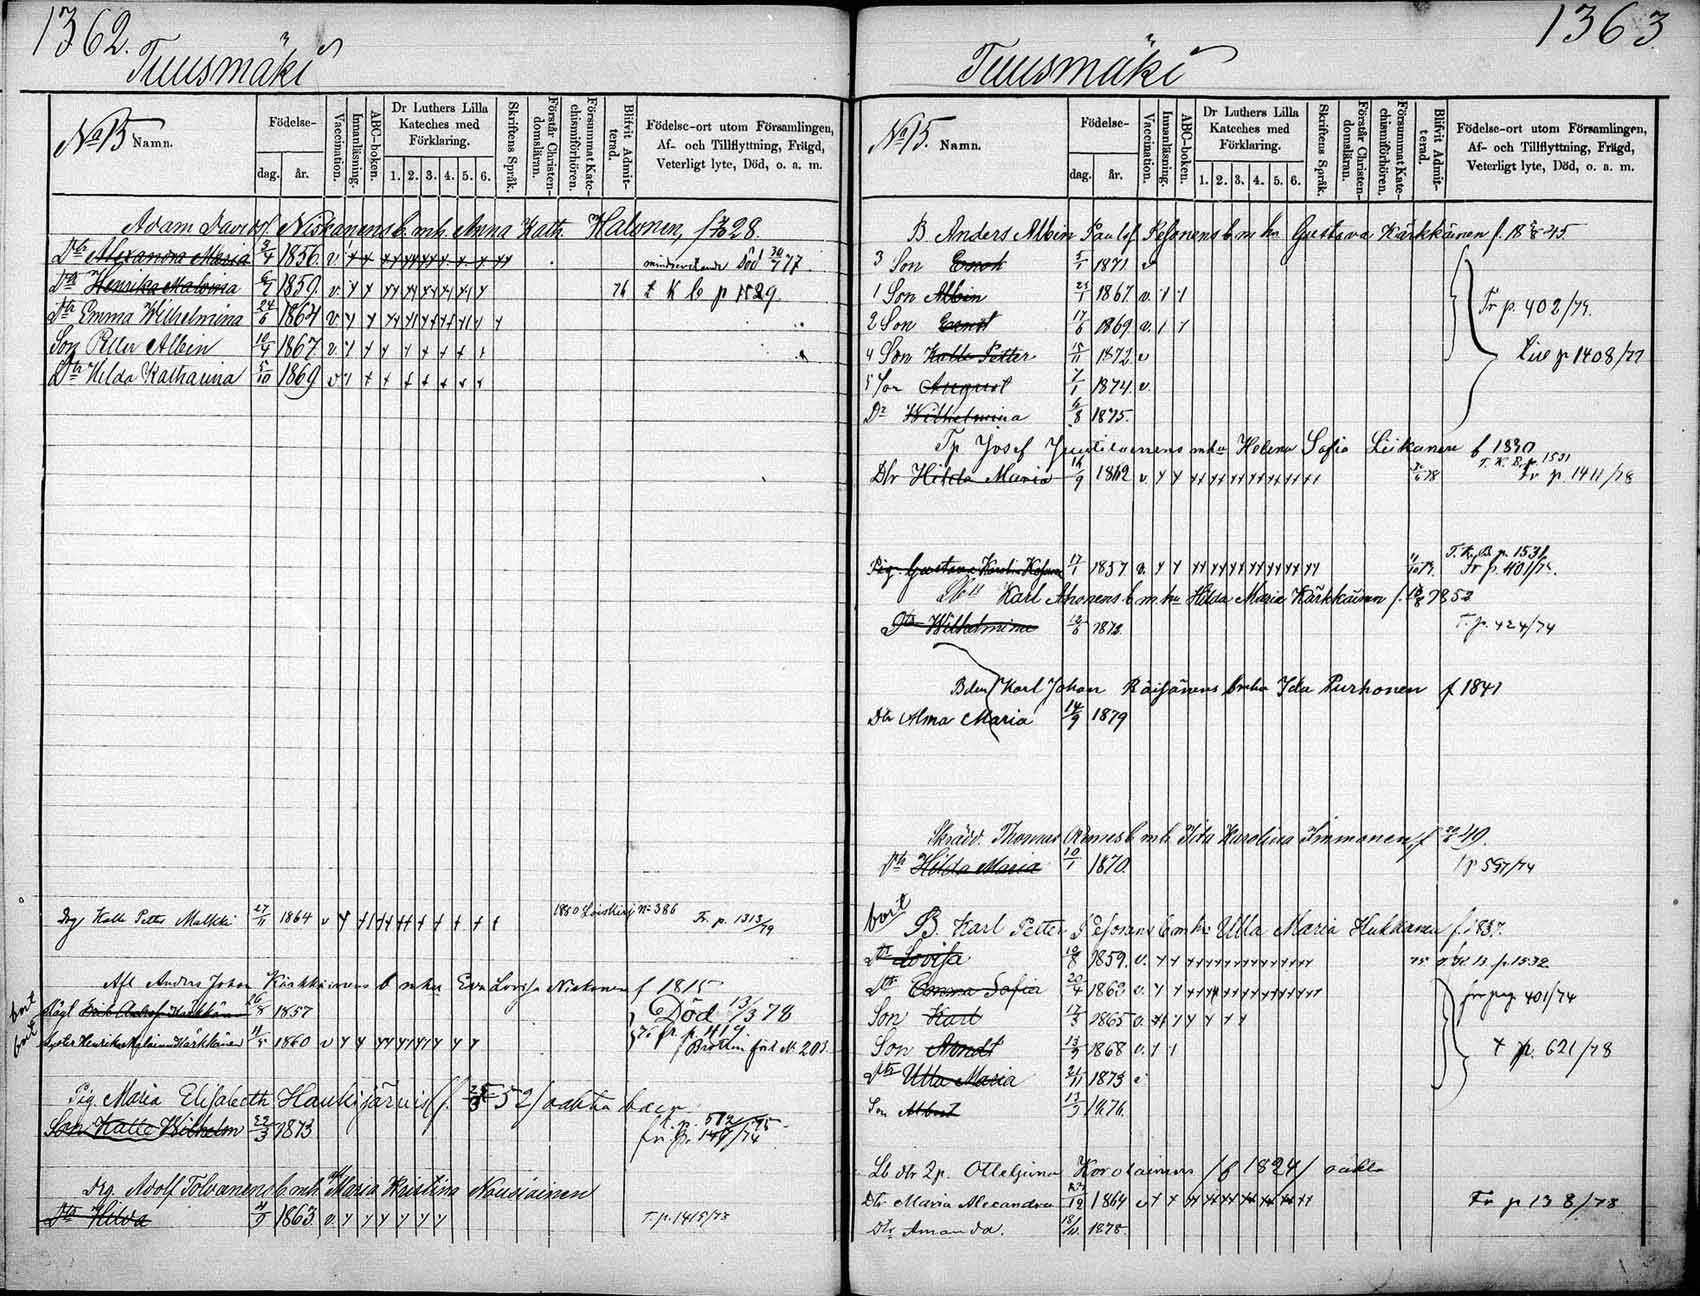 1362.
Tuusmäki
No 15 Namn.
Födelse-
dag.
år.
Vaccination.
Innanläsning.
ABC-boken.
Dr Luthers Lilla
Kateches med
Förklaring.
1. 2. 3. 4. 5. 6.
Skriftens Språk.
Förstår Christen-
domsläran.
Försummat Kate-
chismiförhören.
Blifvit Admit-
terad.
Födelse-ort utom Församlingen,
Af- och Tillflyttning, Frägd,
Veterligt lyte, Död, o. a. m.
Adam Davidsf. Niskanens b. m h. Anna Kath. Halonen, f. 28.
Dtr Alexandra Maria 3/4 1856. v Död 30/4 77
Dtr Henrika Maloma 6/1 1859. v. 76 t K b p 1529.
Dtr Emma Wilhelmina 24/6 1864 v
Son Petter Albin 10/4 1867 v.
Dtr Hilda Katharina 5/10 1869 v
Drg Kalle Petter Malkki 27/11 1864 v 1880 Loiskirj No 386 Fr. p. 1313/79
Afl Anders Johan Kärkkäinens b m hu Eva Lovisa Niskanen f 1815
bort 26/8 1857 Död 13/3 78
bort Syster Henrika Kärkkäinen 11/5 1860 v fr p. 419.
Pig Maria Elisabeth Haukijärvis (f. 52) oäkta
Son Kalle Wilhelm 22/3 1873 fr. p. 147/74
Drg. Adolf Tolvanens b mh Maria Kristina Nousiainen
Dtr Hilda 1863. v. T. p. 1415/78
1363
Tuusmäki
No 15. Namn.
Födelse-
dag.
år.
Vaccination.
Innanläsning.
ABC-boken.
Dr Luthers Lilla
Kateches med
Förklaring.
1. 2. 3. 4. 5. 6.
Skriftens Språk.
Förstår Christen-
domsläran.
Försummat Kate-
chismiförhören.
Blifvit Admit-
terad.
Födelse-ort utom Församlingen,
Af- och Tillflyttning, Frägd,
Veterligt lyte, Död, o. a. m.
B. Anders Albin Paulsf Pesonens b m hu Gustava Kärkkäinen f. 45.
3 Son Enok 5/1 1871 v
1 Son Albin 1867. v. Fr p. 402/74.
2 Son Ernst 17/6 1869. v.
4 Son Kalle Petter 15/11 1872. v p 1408/77
5 Son August 7/1 1874. v.
Dr Wilhelmina 6/8 1875.
Tp Josef Juutilainens m hu Helena Sofia Leikanen f 1830
Dtr Hilda Maria 14/9 1862 v. 78 T. K. B. p. 1531 Fr p. 1411/78
Pig. Gustava Karolin 17/1 1857. v. T. K. B. p. 1531 Fr p. 401/
Karl Ahonens b m hu Hilda Maria Kärkkäinen f. 1852
Dtr Wilhelmina 1873. T. p. 424/74
Karl Johan Räisänens b m hu Ida Purhonen f 1841
Dtr Alma Maria 14/9 1879
Skrädd. Thomas b mh Ida Karolina Immonen, f 49.
Dtr Hilda Maria 10/1 1870. p 597/74
bort B. Karl Petter Pesonens b m hu Ulla Maria Hukkanen f. 1837.
Dtr Lovisa 10/8 1859. v. 75 B. p. 1532
Dtr Emma Sofia 20/4 1863 v. fr pag 401/74
Son Karl 12/3 1865 v.
Son Arndt 13/3 1868 v. t p. 621/78
Dtr Ulla Maria 21/11 1873
Son Albert 13/3 1876.
Lb dtr Korolainens (f 1824) oäkta
Dtr Maria Alexandra 1864 v Fr p 138/78
Dtr Amanda. 1878.